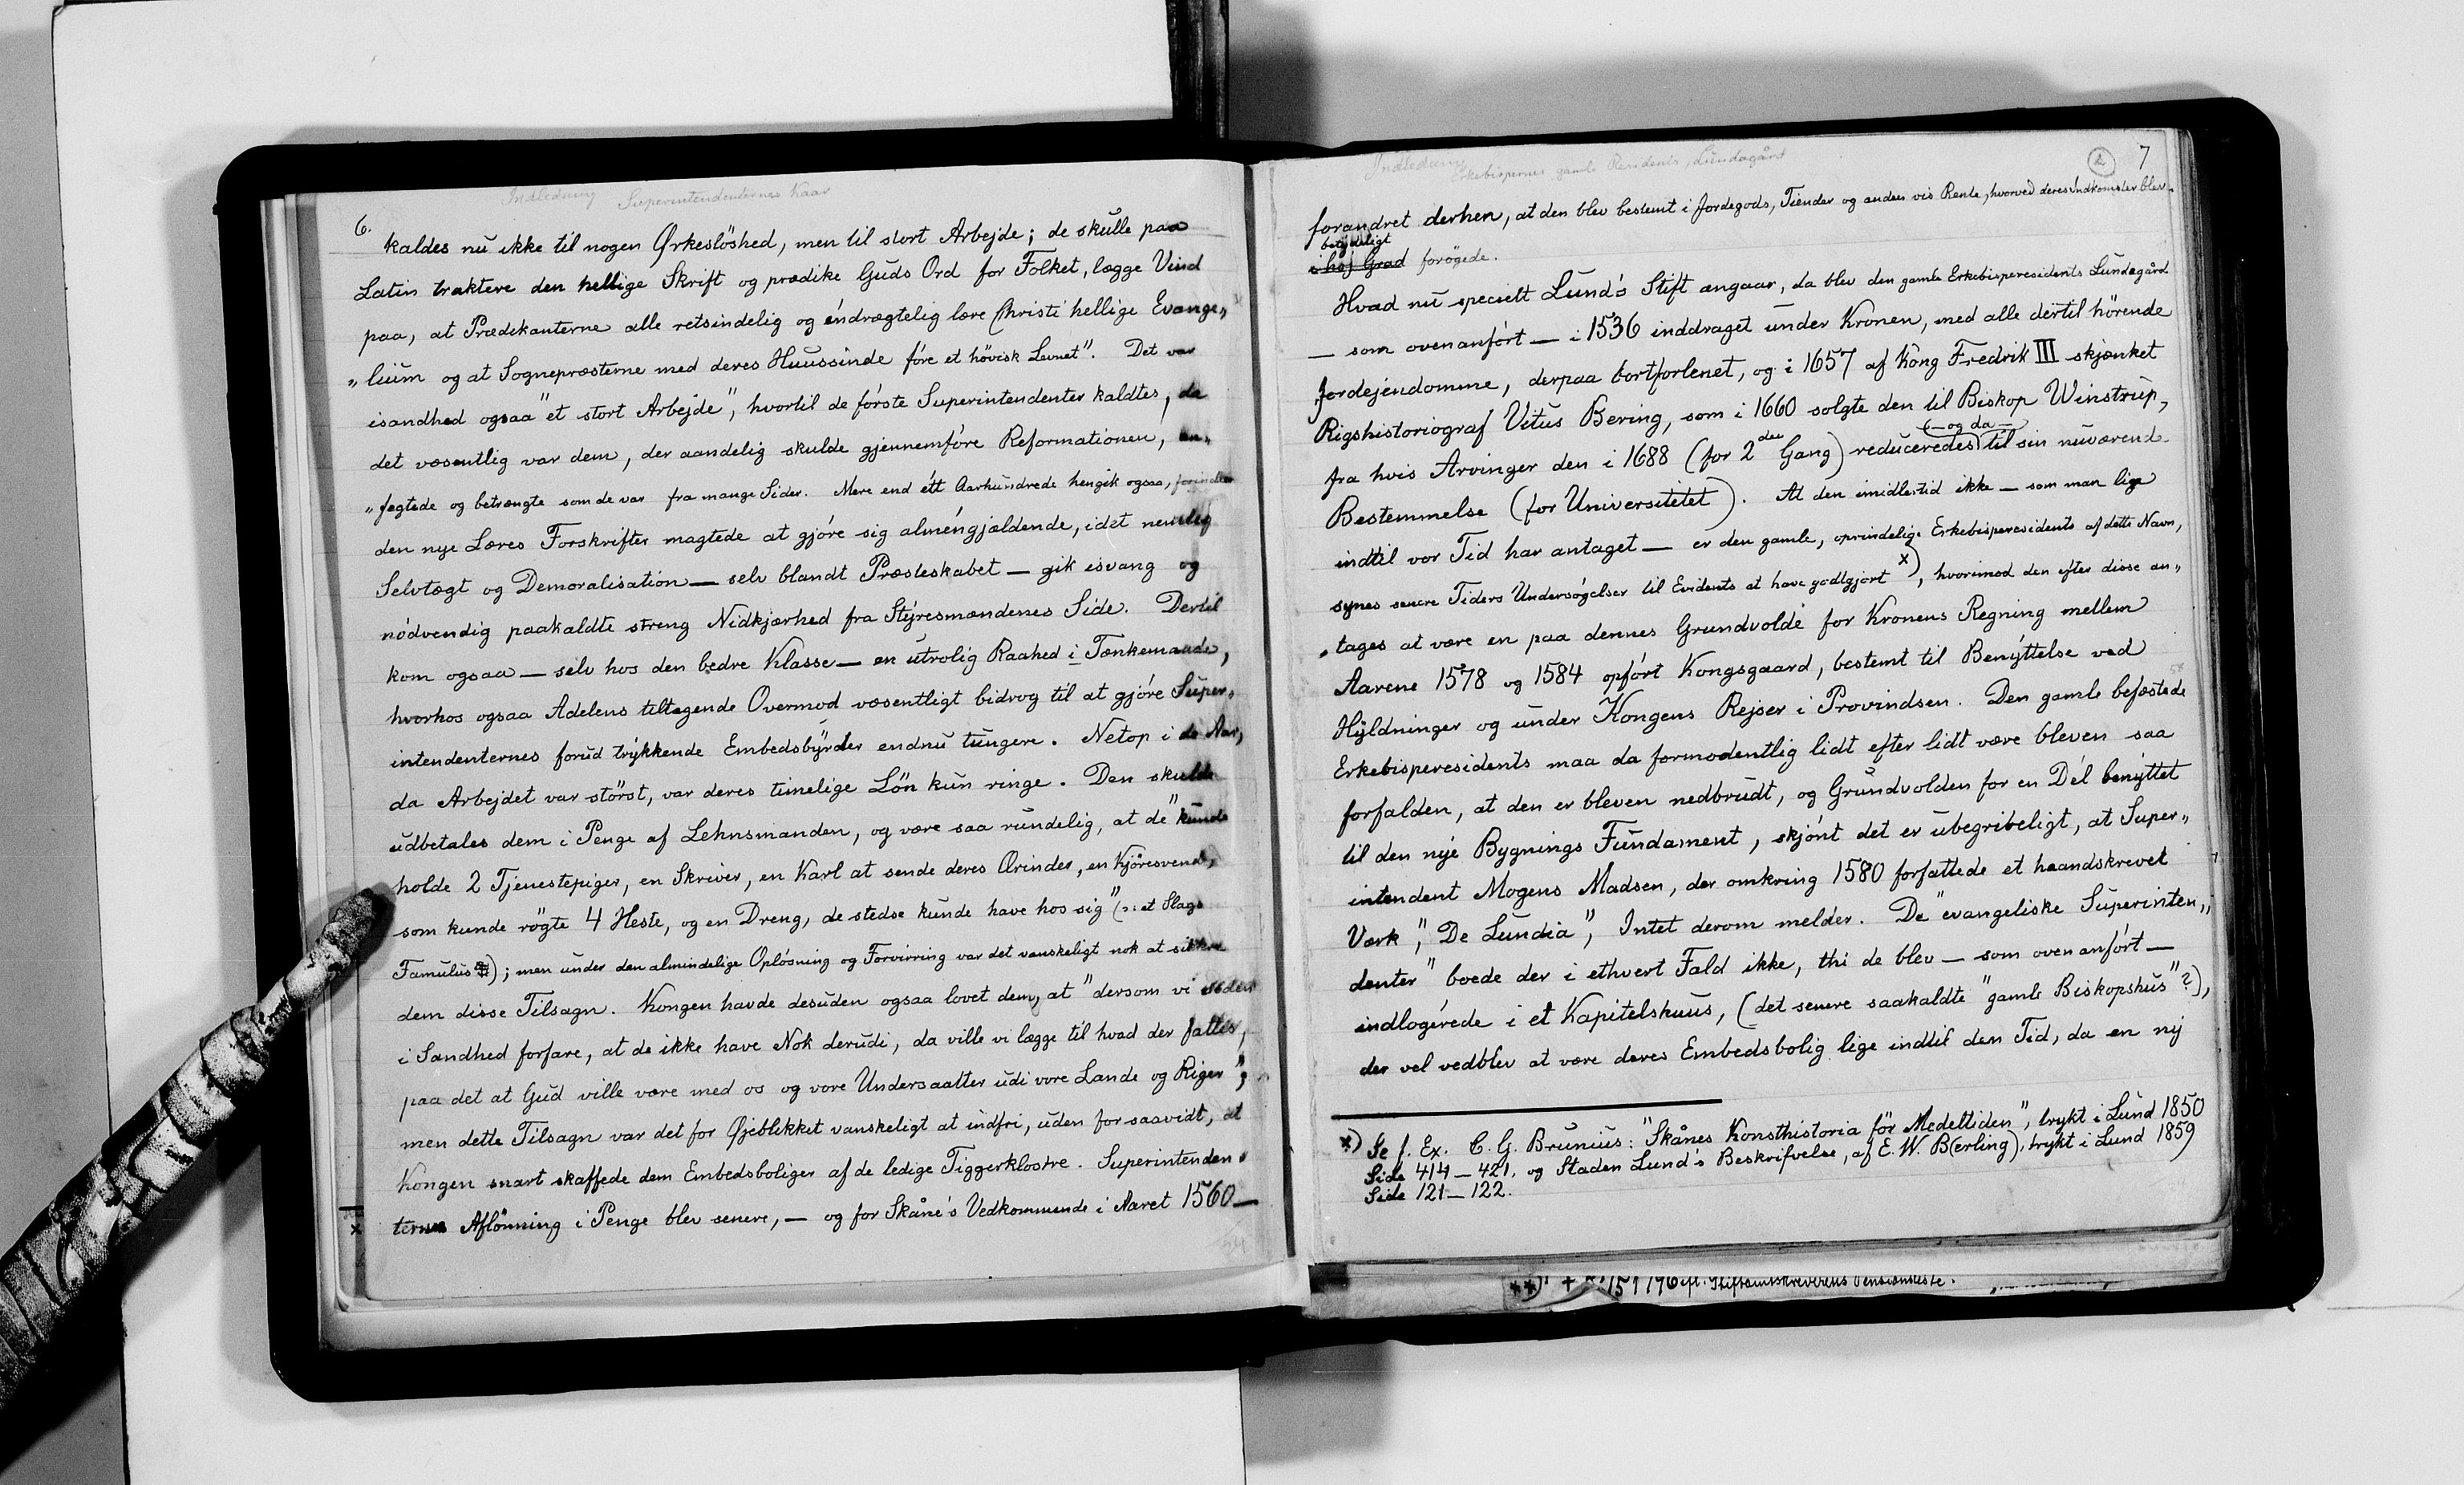 Indledning Superintendenternes Kaar
6.
kaldes nu ikke til nogen Ørkeslöshed, men til stort Arbejde; de skulle paa
Latin traktere den hellige Skrift og prædike Guds Ord for Folket, lægge Vind
paa, at Prædikanterne alle retsindelig og éndrægtelig lære Christi hellige Evange„
„lium og at Sognepræsterne med deres Huussinde före et hövisk Levnet". Det var
isandhed ogsaa "et stort Arbejde", hvortil de förste Superintendenter kaldtes, da
det væsentlig var dem, der aandelig skulde gjennemföre Reformationen, an„
„fægtede og betrængte som de var fra mange Sider. Mere end étt Aarhundrede hengik ogsaa, forinden
den nye Læres Forskrifter magtede at gjöre sig alméngjældende, idet nemlig
Selvtægt og Demoralisation — selv blandt Præsteskabet — gik isvang og
nödvendig paakaldte streng Nidkjærhed fra Styresmændenes Side. Dertil
kom ogsaa — selv hos den bedre Klasse — en utrolig Raahed i Tænkemaade,
hvorhos ogsaa Adelens tiltagende Overmod væsentligt bidrog til at gjöre Super„
intendenternes forud trykkende Embedsbyrder endnu tungere. Netop i de Aar,
da Arbejdet var störst, var deres timelige Lön kun ringe. Den skulde
udbetales dem i Penge af Lehnsmanden, og være saa rundelig, at de "kunde
holde 2 Tjenestepiger, en Skriver, en Karl at sende deres Ærinder, en Kjöresvend,
som kunde rögte 4 Heste, og en Dreng, de stedse kunde have hos sig" (ɔ: et Slags
Famulus); men under den almindelige Oplösning og Forvirring var det vanskeligt nok at sikkre
dem disse Tilsagn. Kongen havde desuden ogsaa lovet dem, at "dersom vi
i Sandhed forfare, at de ikke have Nok derudi, da ville vi lægge til hvad der fattes,
paa det at Gud ville være med os og vore Undersaatter udi vore Lande og Riger";
men dette Tilsagn var det for Øjeblikket vanskeligt at indfri, uden forsaavidt, at
Kongen snart skaffede dem Embedsboliger af de ledige Tiggerklostre. Superintenden„
x ternes Aflönning i Penge blev senere, — og for Skåne's Vedkommende i Aaret 1560 —
Indledning Erkebispernes gamle Residents, Lundagård
2 7
forandret derhen, at den blev bestemt i Jordegods, Tiender og anden vis Rente, hvorved deres Indkomster blev
betydeligt
i höj Grad forögede.
Hvad nu specielt Lund's Stift angaar, da blev den gamle Erkebisperesidents Lundagård
— som ovenanfört — i 1536 inddraget under Kronen, med alle dertil hörende
Jordejendomme, derpaa bortforlenet, og i 1657 af Kong Fredrik III skjænket
Rigshistoriograf Vitus Bering, som i 1660 solgte den til Biskop Winstrup,
(— og da —
fra hvis Arvinger den i 1688 (for 2den Gang) reduceredes til sin nuværend
Bestemmelse (for Universitetet). At den imidlertid ikke — som man lige
indtil vor Tid har antaget — er den gamle, oprindelige Erkebisperesidents af dette Navn,
synes senere Tiders Undersögelser til Evidents at have godtgjort x), hvorimod den efter disse an„
„tages at være en paa dennes Grundvolde for Kronens Regning mellem
Aarene 1578 og 1584 opfört Kongsgaard, bestemt til Benyttelse ved
Hyldninger og under Kongens Rejser i Provindsen. Den gamle befæstede
Erkebisperesidents maa da formodentlig lidt efter lidt være bleven saa
forfalden, at den er bleven nedbrudt, og Grundvolden for en Dél benyttet
til den nye Bygnings Fundament, skjönt det er ubegribeligt, at Super„
intendent Mogens Madsen, der omkring 1580 forfattede et haandskrevet
Værk, "De Lundia", Intet derom melder. De "evangeliske Superinten„
denter" boede der i ethvert Fald ikke, thi de blev — som ovenanfört —
indlogérede i et Kapitelshuus, (det senere saakaldte "gamle Biskopshus"?),
der vel vedblev at være deres Embedsbolig lige indtil den Tid, da en ny
x) Se f. Ex. C. G. Brunius: "Skånes Konsthistoria för Medeltiden", trykt i Lund 1850
Side 414 — 421. og Staden Lund's Beskrifvelse, af E. W. B(erling), trykt i Lund 1859
Side 121 — 122.